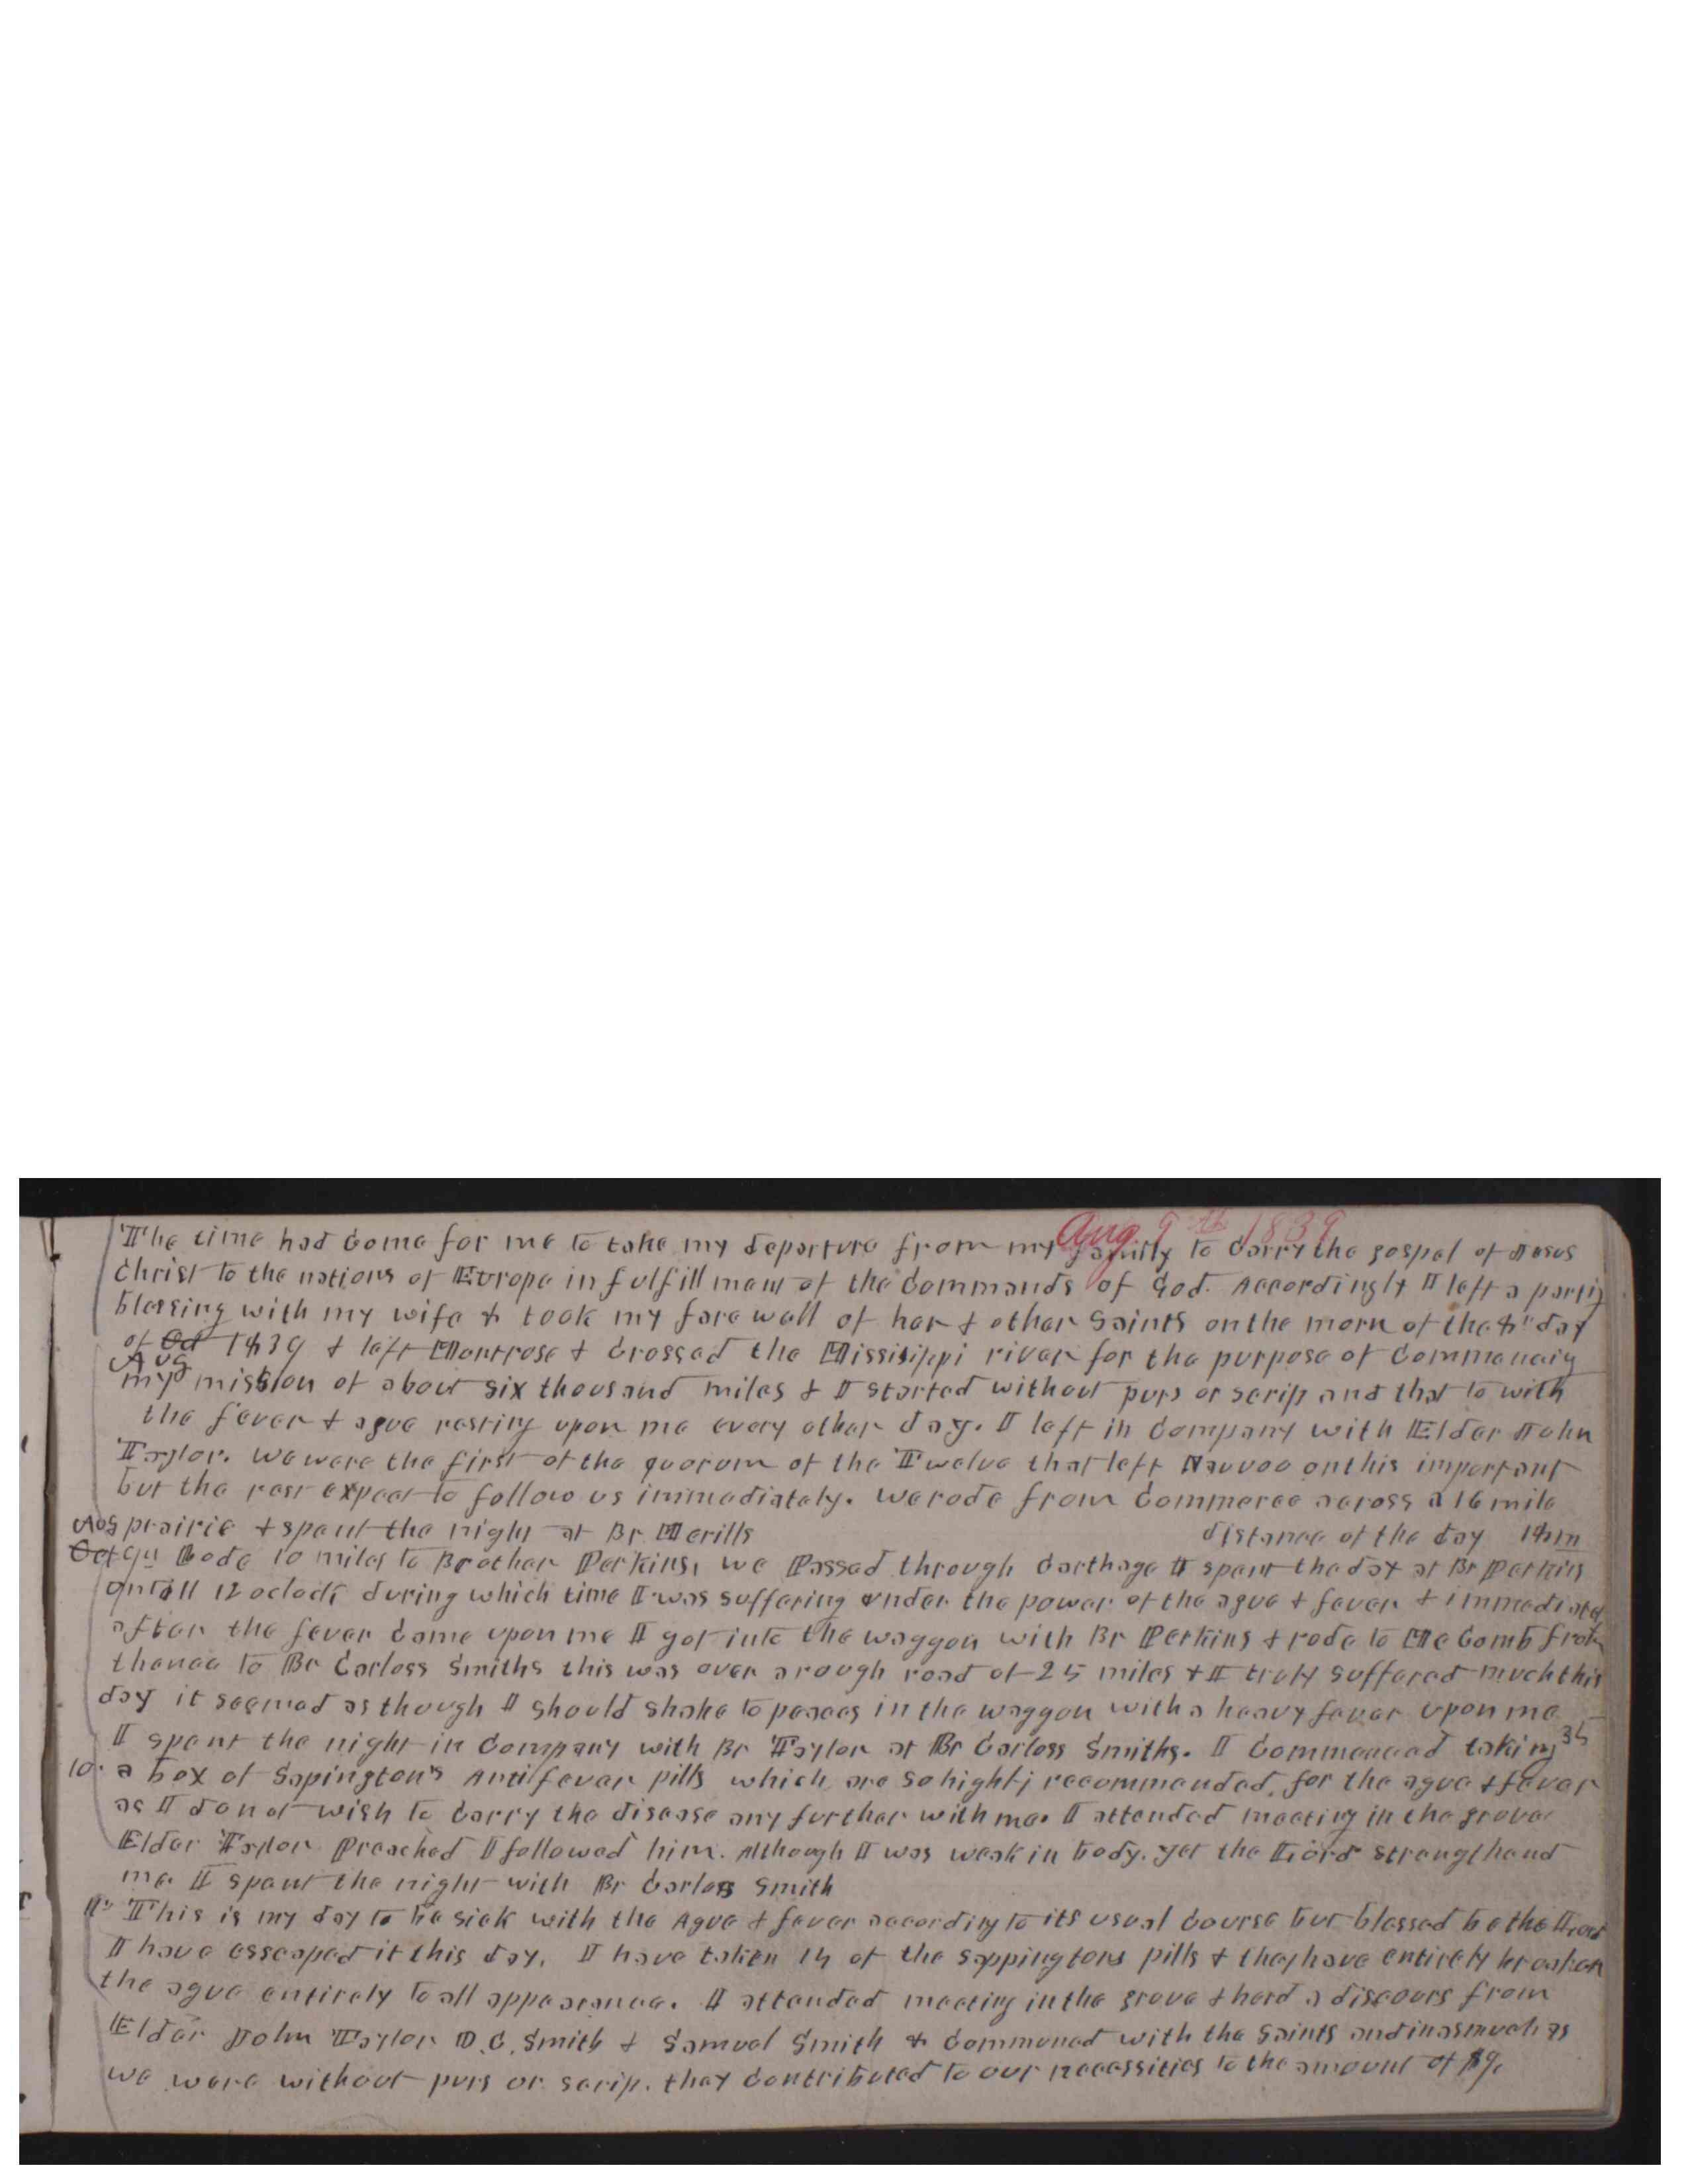 Aug 9th 1839
The time had Come for me to take my departure from my family to Carry the gospel of Jesus
Christ to the nations of Europe in fulfillment of the Commands of God. Accordingly I left a parting
blessing with my wife & took my farewell of her & other Saints on the morn of the 8th day
of Oct 1839 & left Montrose & Crossed the Missisippi river for the purpose of Commencing
Aug
my mission of about six thousand miles & I started without purs or scrip and that to with
the fever & ague resting upon me every other day. I left in Company with Elder John
Taylor. we were the first of the quorum of the Twelve that left Nauvoo on this important
but the rest expect to follow us immediately. we rode from Commerce across a 16 mile
Aug prairie & spent the night at Br Merills distance of the day 18 m
Oct 9th Rode 10 miles to Brother Perkins, we Passed through Carthage I spent the day at Br Perkins
untill 12 oclock during which time I was suffering under the power of the ague & fever & immediately
after the fever Came upon me I got into the waggon with Br Perkins & rode to McComb from
thence to Br Carloss Smiths this was over a rough road of 25 miles & I truly suffered much this
day it seemed as though I should shake to peaces in the waggon with a heavy fever upon me
I spent the night in Company with Br Taylor at Br Carloss Smiths. I Commenced taking 35
10. a box of Sapington's Antifever pills which are so highly recommended, for the ague & fever
as I do not wish to Carry the disease any further with me. I attended meeting in the grove
Elder Taylor Preached I followed him. Although I was weak in body. yet the Lord strengthend
me. I spent the night with Br Carloss Smith
11th This is my day to be sick with the Ague & fever according to its usual Course but blessed be the Lord
I have esscaped it this day. I have taken 14 of the Sappingtons pills & they have entirely broaken
the ague entirely to all appearance. I attended meeting in the grove & hard a discours from
Elder John Taylor D. C. Smith & Samuel Smith & Communed with the Saints and inasmuch as
we were without purs or scrip. they Contributed to our necessities to the amount of $9.